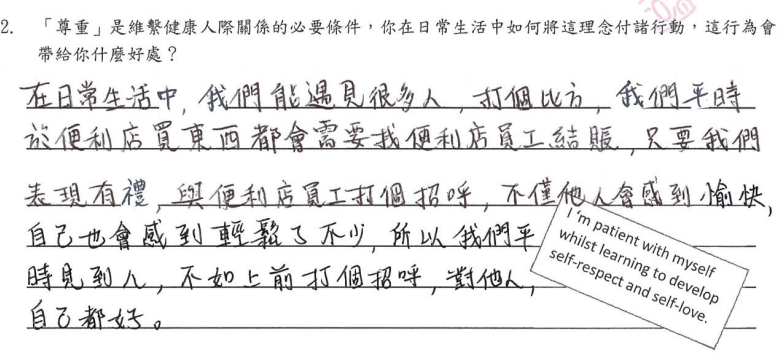 2. 「尊重」是維繫健康人際關係的必要條件，你在日常生活中如何將這理念付諸行動，這行為會
帶給你什麼好處？
在日常生活中，我們能遇見很多人，打個比方，我們平時
於便利店買東西都會需要找便利店員工結賬，只要我們
表現有禮，與便利店員工打個招呼，不僅他人會感到愉快，
自己也會感到輕鬆了不少，所以我們平
時見到人，不如上前打個招呼，對他人，
自己都好。
I'm patient with myself
whilst learning to develop
self-respect and self-love.